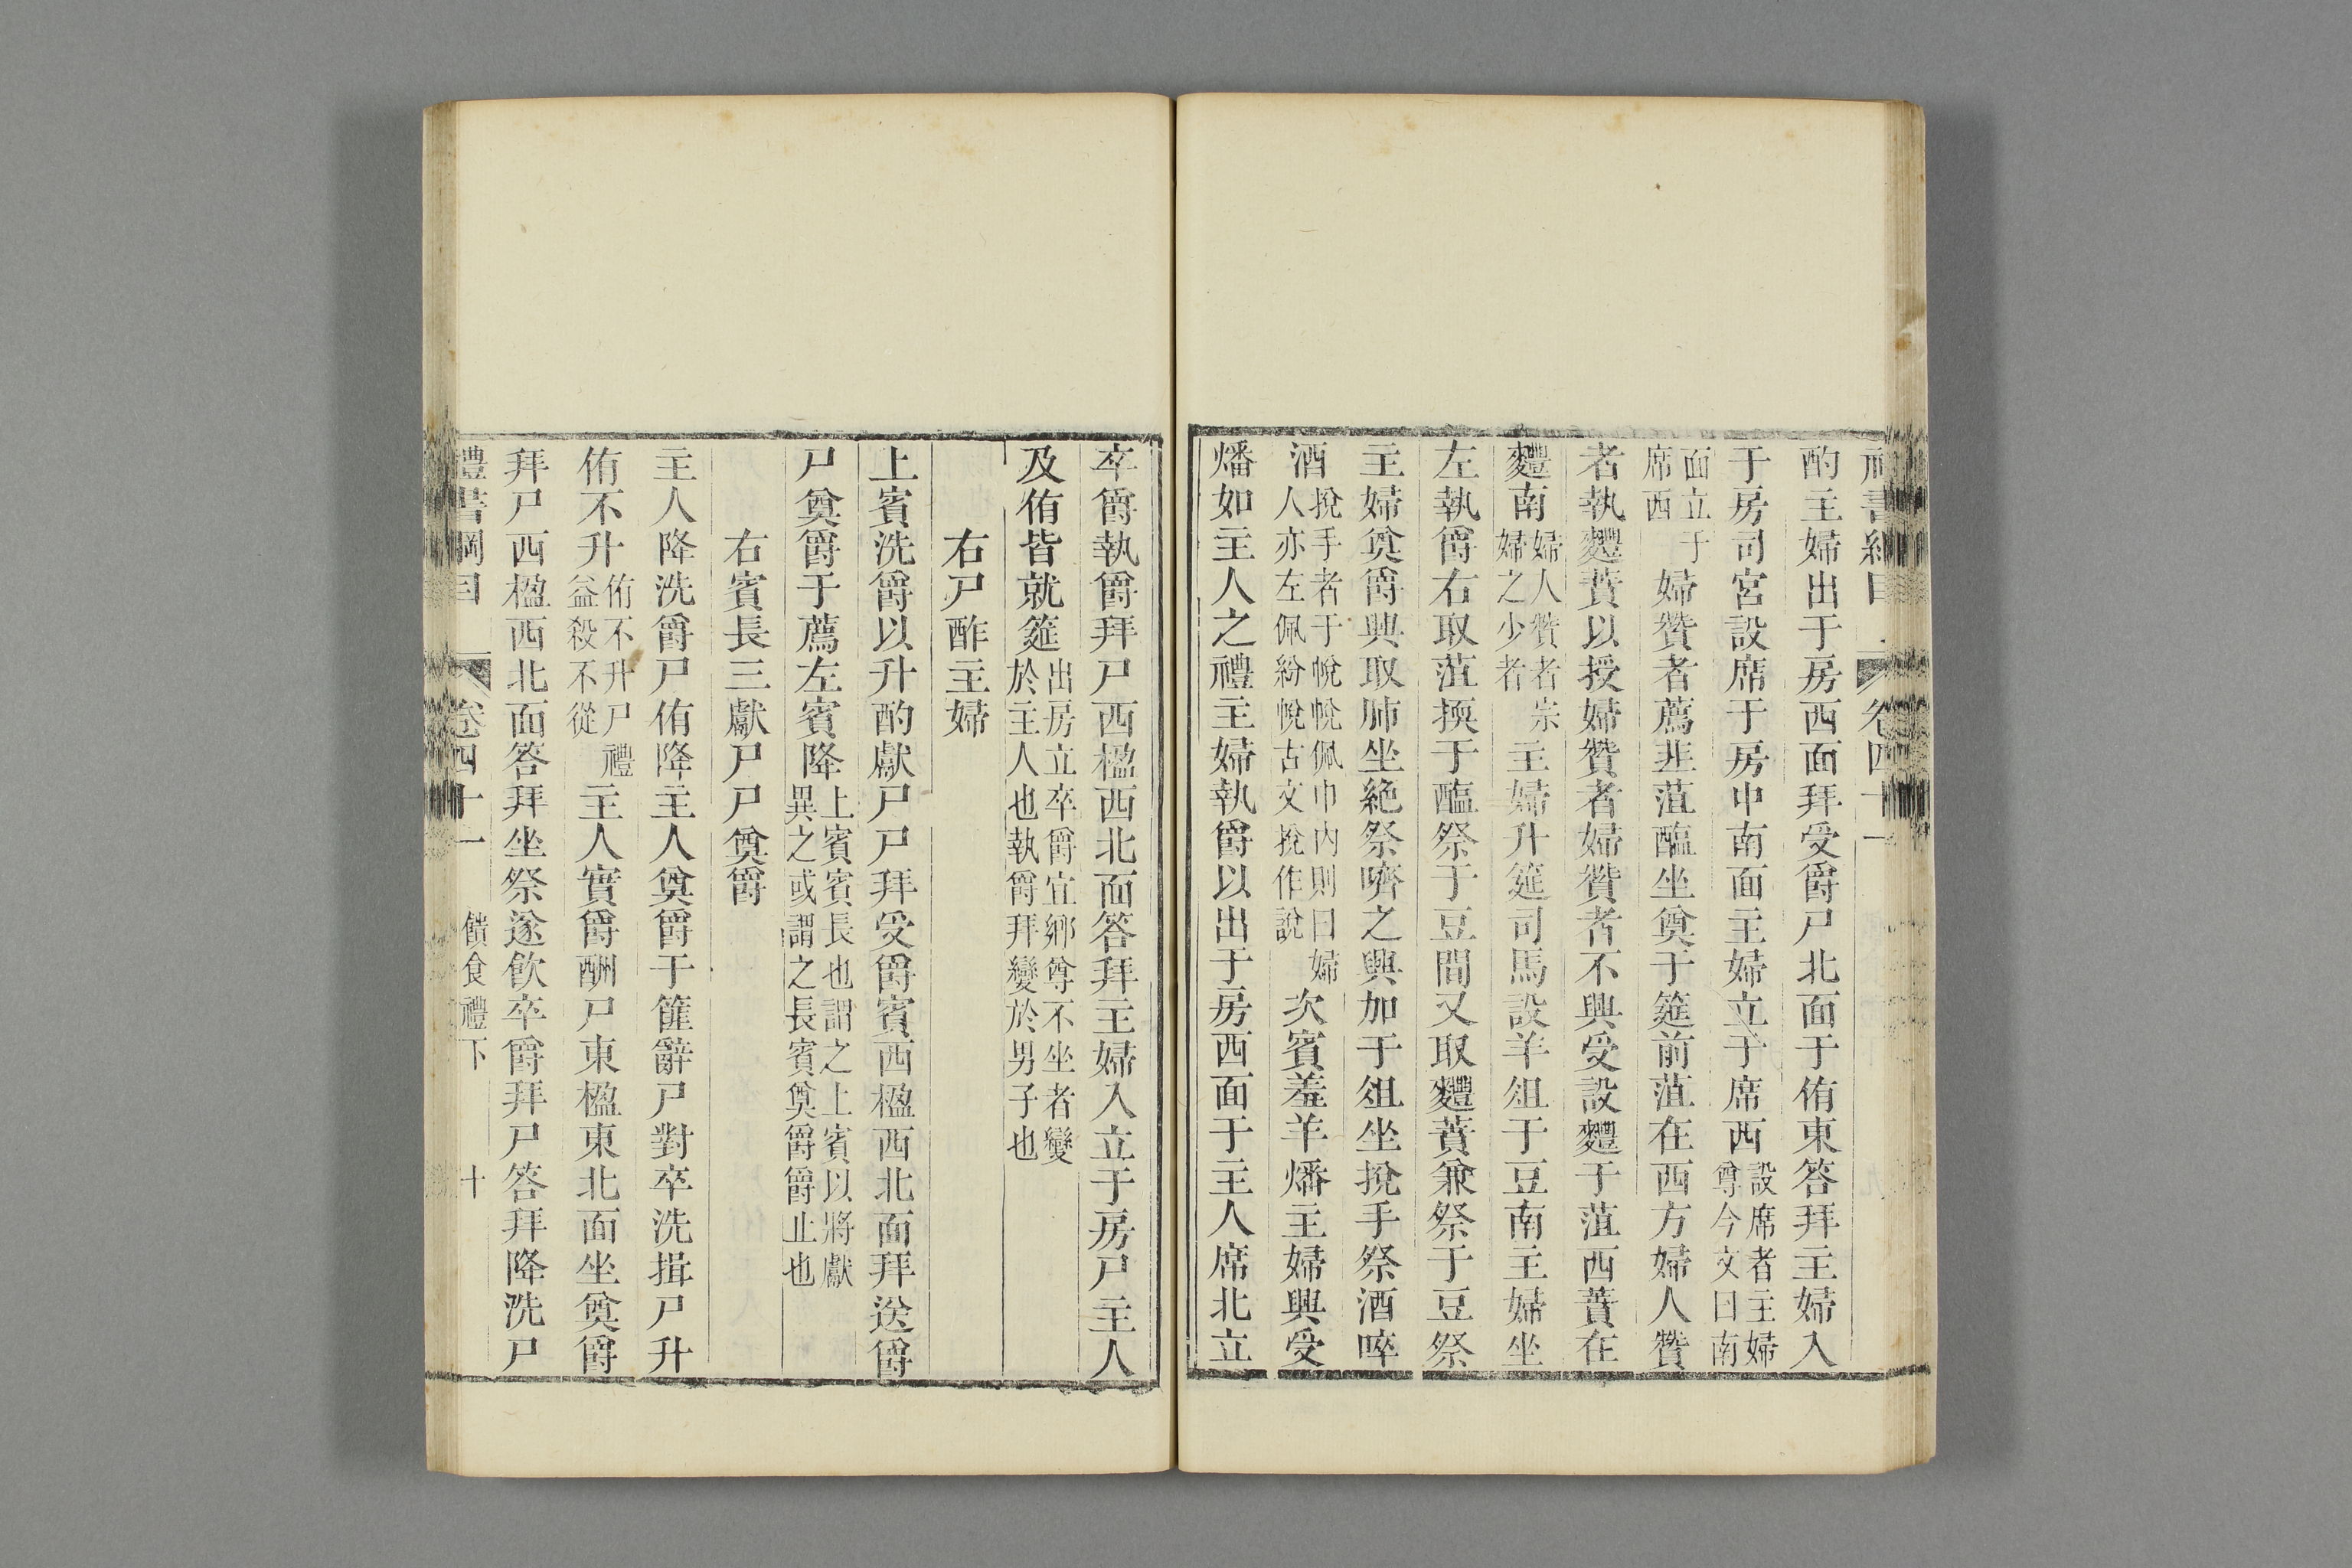 禮書綱目 卷四十一
酌主婦出于房西面拜受爵尸北面于侑東答拜主婦入
于房司宮設席于房中南面主婦立于席西設席者主婦尊今文曰南
面立于席西婦贊者薦韭菹醢坐奠于筵前菹在西方婦人贊
者執麷蕡以授婦贊者婦贊者不興受設麷于菹西蕡在
麷南婦人贊者宗婦之少者主婦升筵司馬設羊俎于豆南主婦坐
左執爵右取菹擩于醢祭于豆間又取麷蕡兼祭于豆祭
主婦奠爵興取肺坐絕祭嚌之興加于俎坐挩手祭酒啐
酒挩手者于帨帨佩巾內則曰婦人亦左佩紛帨古文挩作說次賓羞羊燔主婦興受
燔如主人之禮主婦執爵以出于房西面于主人席北立
卒爵執爵拜尸西楹西北面答拜主婦入立于房尸主人
及侑皆就筵出房立卒爵宜鄉尊不坐者變於主人也執爵拜變於男子也
右尸酢主婦
上賓洗爵以升酌獻尸尸拜受爵賓西楹西北面拜送爵
尸奠爵于薦左賓降上賓賓長也謂之上賓以將獻異之或謂之長賓奠爵爵止也
右賓長三獻尸尸奠爵
主人降洗爵尸侑降主人奠爵于篚辭尸對卒洗揖尸升
侑不升侑不升尸禮益殺不從主人實爵酬尸東楹東北面坐奠爵
拜尸西楹西北面答拜坐祭遂飲卒爵拜尸答拜降洗尸
禮書綱目 卷四十一 饋食禮下 十